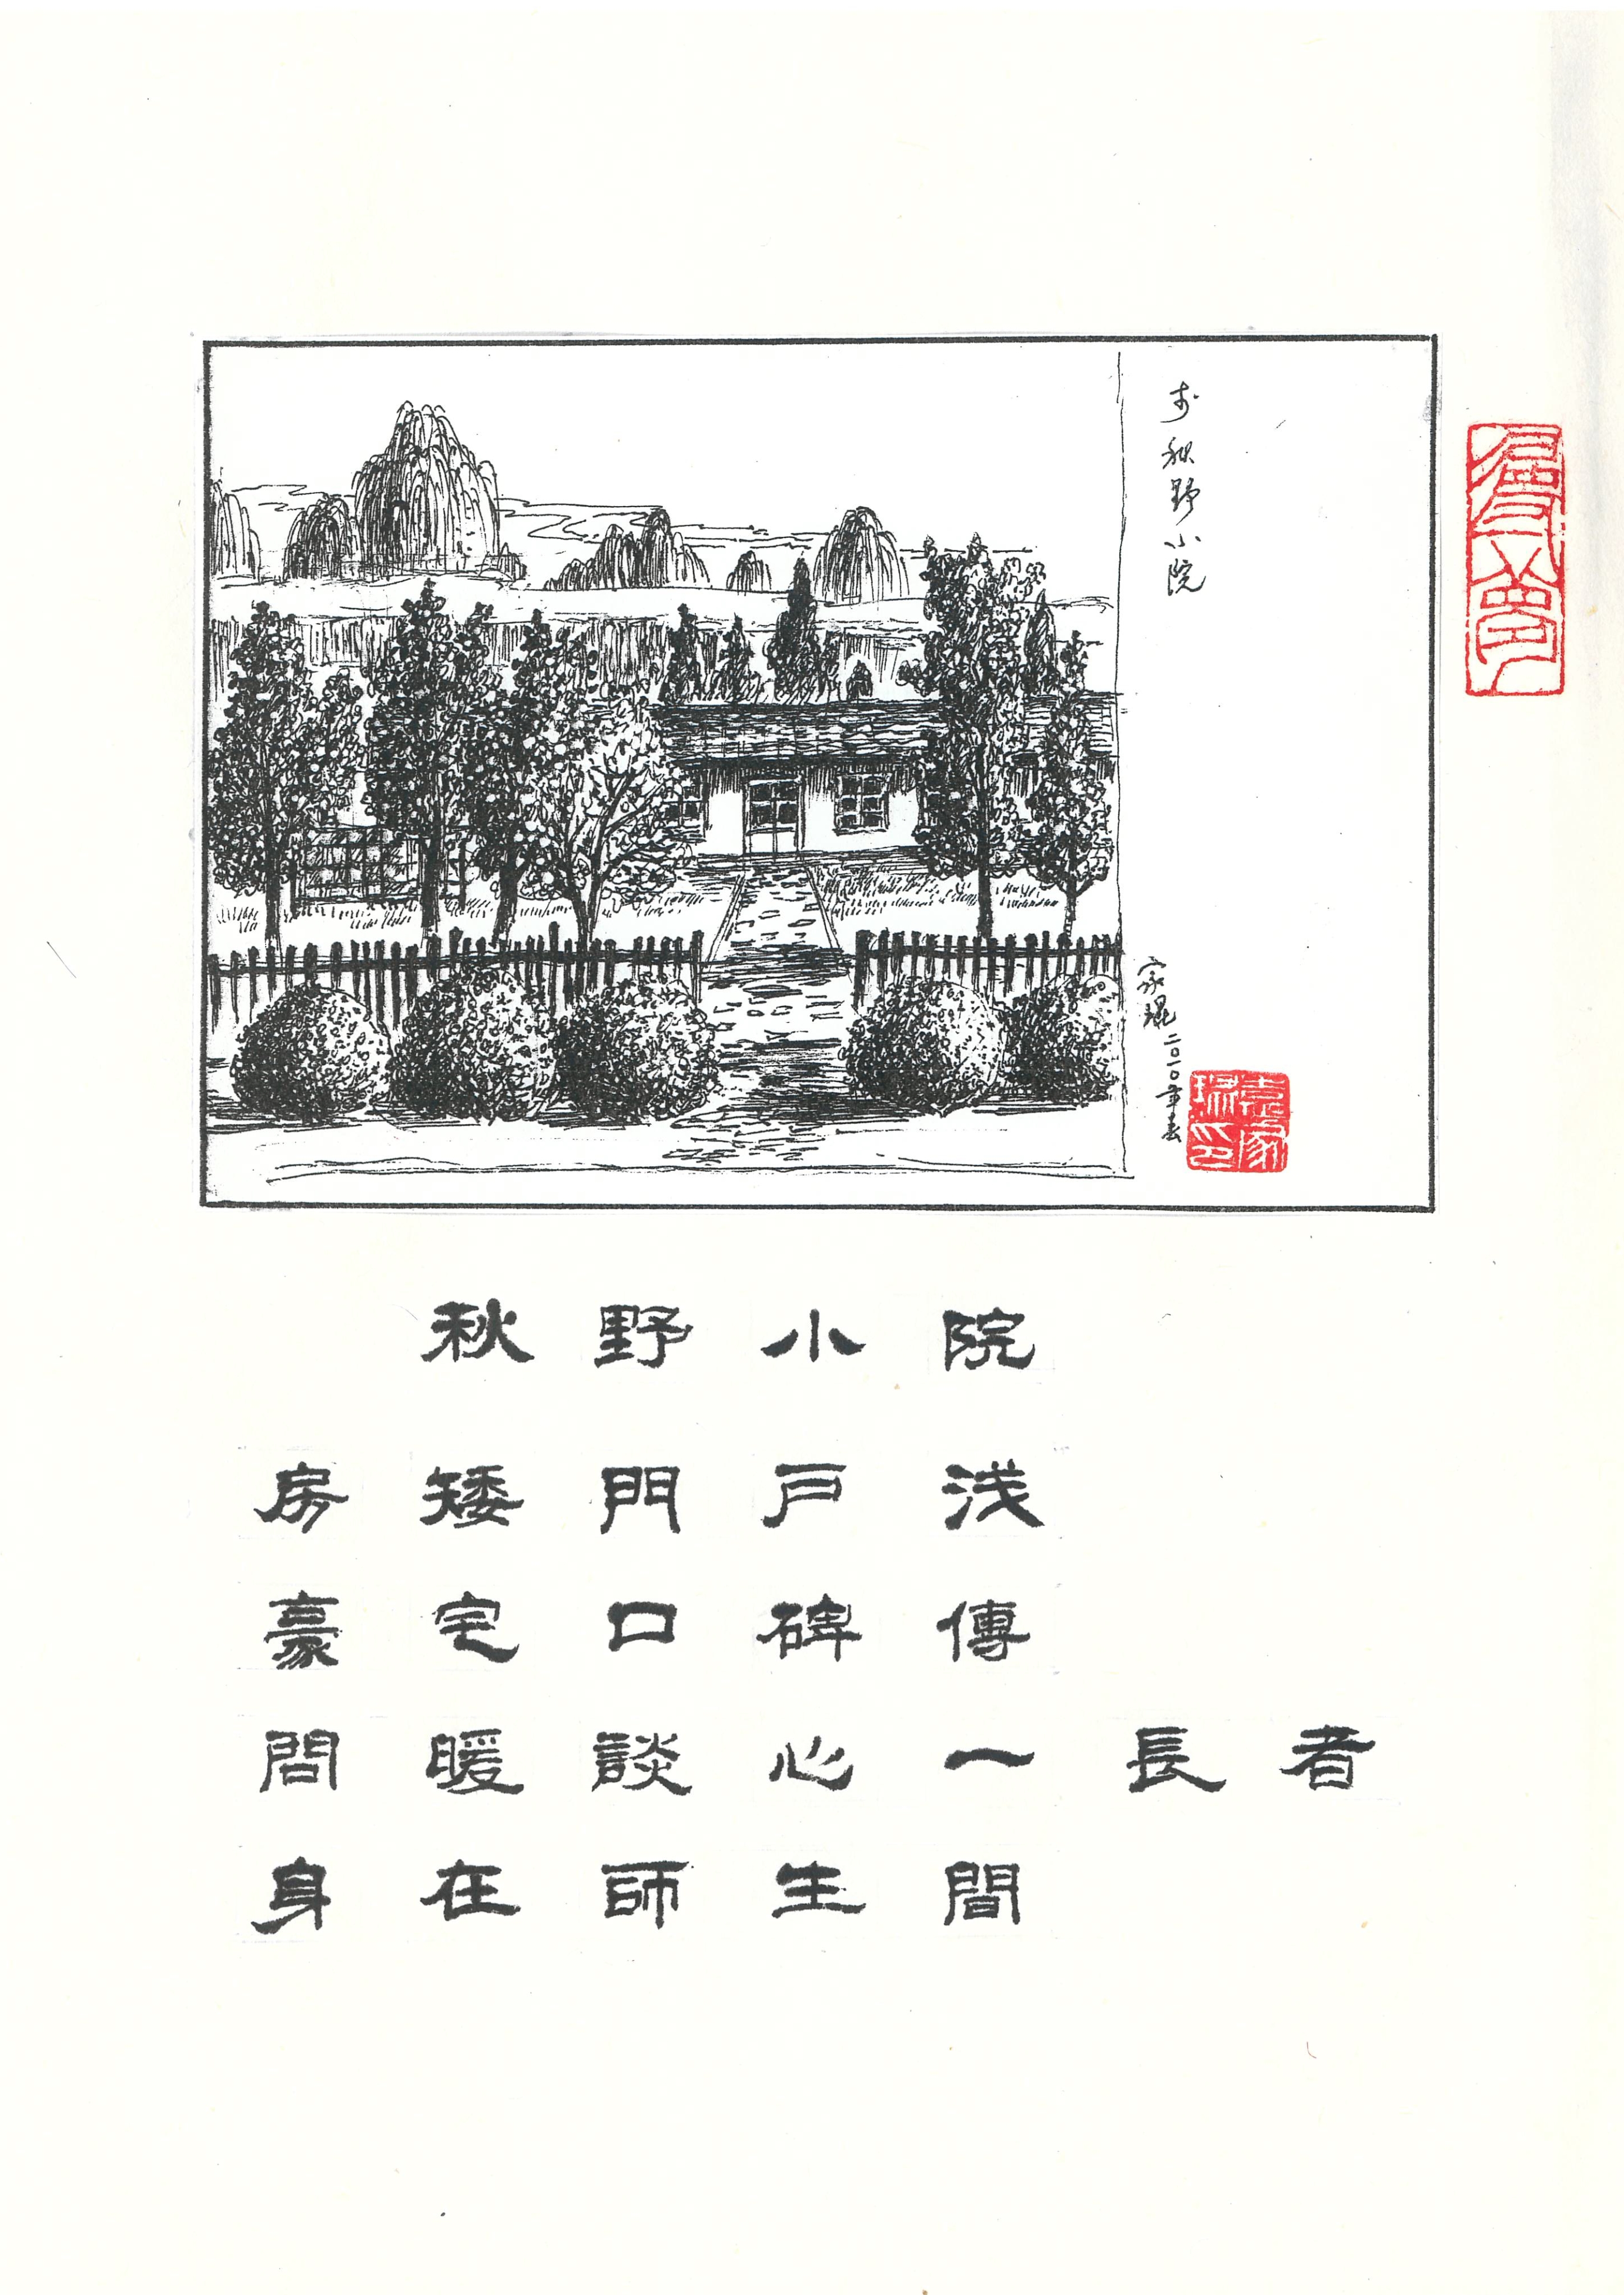 秋野小院
家琨二〇一〇年春
秋野小院
房矮門戶浅
豪宅口碑傳
問暖談心一長者
身在師生間